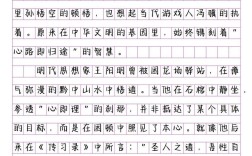 里孙悟空的顿悟，也想起当代游戏人冯骥的执
着。原来在中华文明的基因里，始终镌刻着"
心路即归途"的智慧。
明代思想家王阳明曾被困龙场驿站，在瘴
气弥漫的黔中山水中悟道。当他在石棺中静坐，
参透"心即理"的刹那，并非抵达了某个具体
的目标，而是在困顿中照见了本心。就像他后
来在《传习录》中所言："圣人之道，吾性自